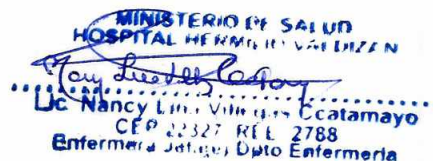 MINISTERIO DE SALUD
HOSPITAL HERMILIO VALDIZAN
Lic Nancy Villegas Ccatamayo
CEP 22327 REE 2788
Enfermera Jefe Dpto Enfermeria